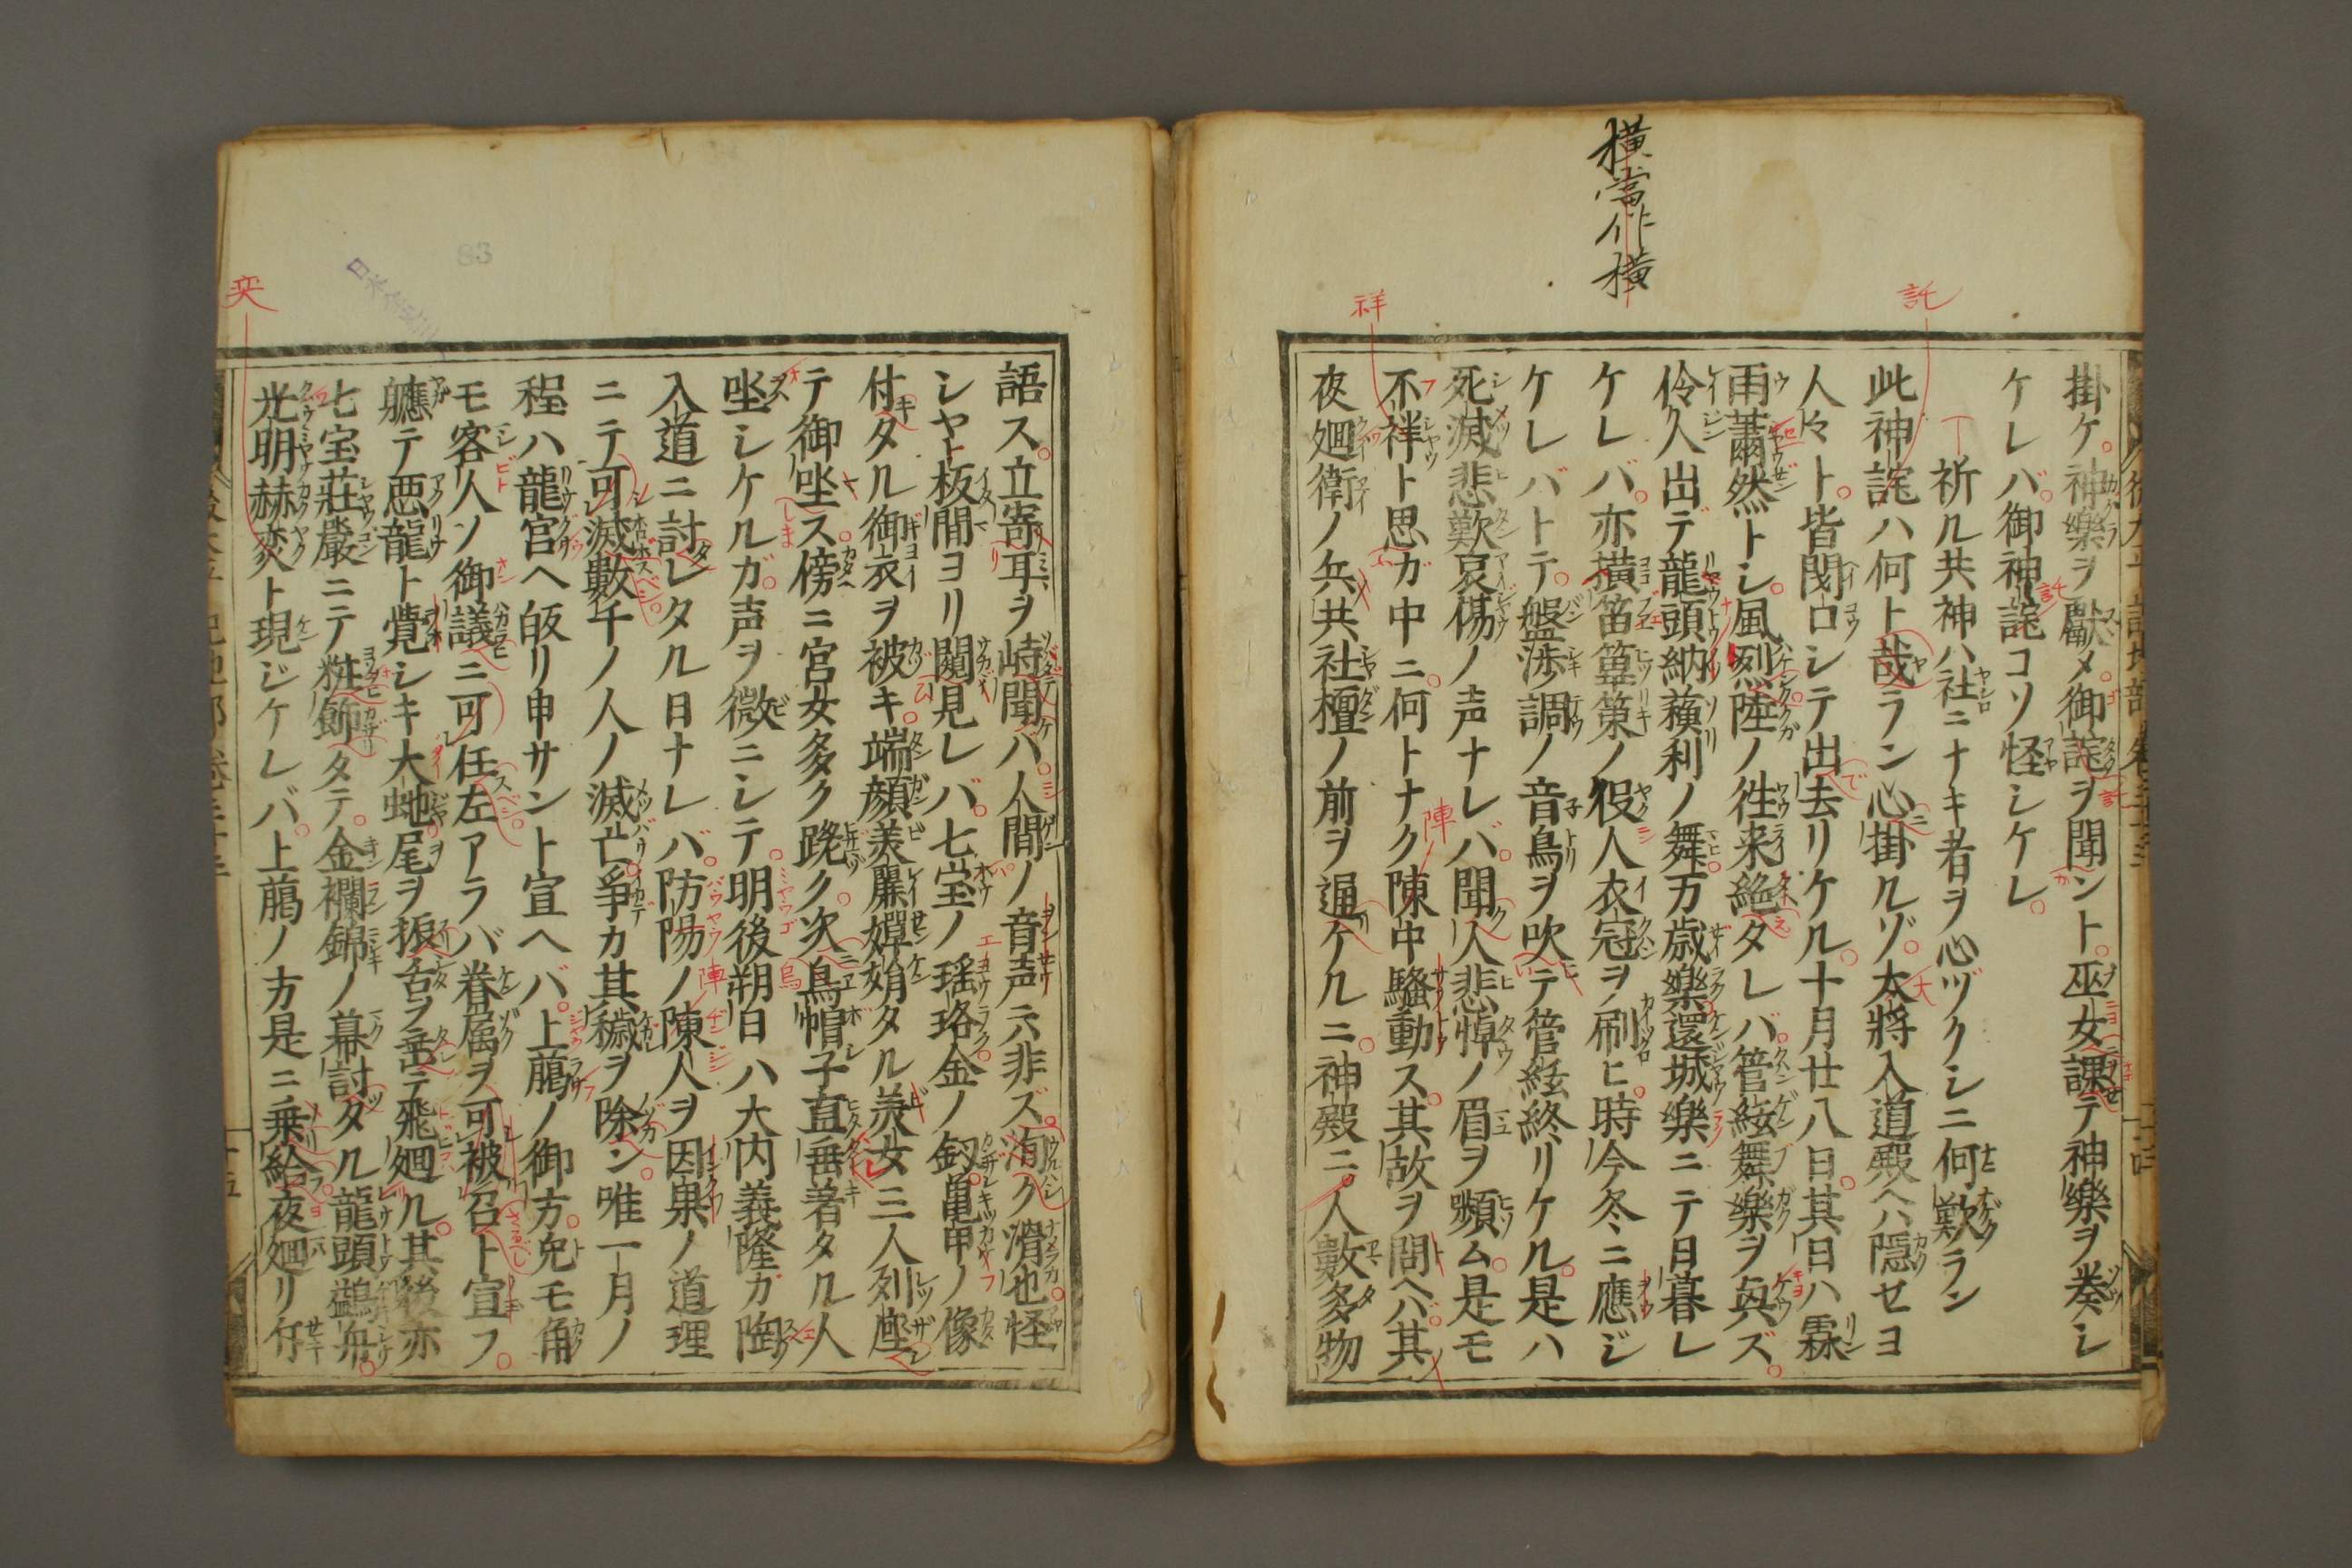 橫當作横
託
祥
掛ケ。神樂ヲ獻メ。御詫ヲ聞ント。巫女課テ神樂ヲ奏シ
ケレバ。御神詫コソ怪シケレ。
祈ル共神ハ社ニナキ者ヲ心ヅクシニ何歎ラン
此神詫ハ何ト哉ラン心掛ルゾ。大將入道殿ヘハ隱セヨ
人々ト。皆閇口シテ出去リケル。十月廿八日。其日ハ霖
雨蕭然トシ。風烈陸ノ徃来絶タレバ。管絃舞樂ヲ與ズ。
伶人出デ龍頭納蘓利ノ舞。万歳樂。還城樂ニテ日暮レ
ケレバ。亦横笛篳篥ノ役人衣冠ヲ刷ヒ。時今冬ニ應ジ
ケレバトテ。盤渉調ノ音鳥ヲ吹テ管絃終リケル。是ハ
死滅悲歎哀傷ノ声ナレバ。聞人悲悼ノ眉ヲ顰ム。是モ
不祥ト思ガ中ニ。何トナク陳中騒動ス。其故ヲ問ヘバ。其
夜廻衛ノ兵共社檀ノ前ヲ過ケルニ。神殿ニ。人數多物
語ス。立寄耳ヲ峙聞バ。人間ノ音声ニ非ズ。渭ク滑也。怪
シヤト板間ヨリ闚見レバ。七宝ノ瑶珞金ノ釵。亀甲ノ像
付タル御衣ヲ被キ。端顔美麗嬋娟タル美女三人列座
テ御坐ス。傍ニ宮女多ク跪ク。次烏帽子直垂着タル人
坐シケルガ。声ヲ微ニシテ。明後朔日ハ大内義隆ガ陶
入道ニ討レタル日ナレバ。防陽ノ陳人ヲ因果ノ道理
ニテ可滅數千ノ人ノ滅亡爭カ其穢ヲ除ン。唯一月ノ
程ハ龍宮ヘ皈リ申サント宣ヘバ。上﨟ノ御方。免モ角
モ客人ノ御議ニ可任左アラバ眷属ヲ可被召ト宣フ。
軈テ悪龍ト覺シキ大虵尾ヲ振舌ヲ垂テ飛廻ル。其後亦
七宝荘嚴ニテ粧餝タテ。金襴錦ノ幕討タル龍頭鷁舟。
光明赫奕ト現ジケレバ。上﨟ノ方是ニ乗給夜廻リ佇
奕